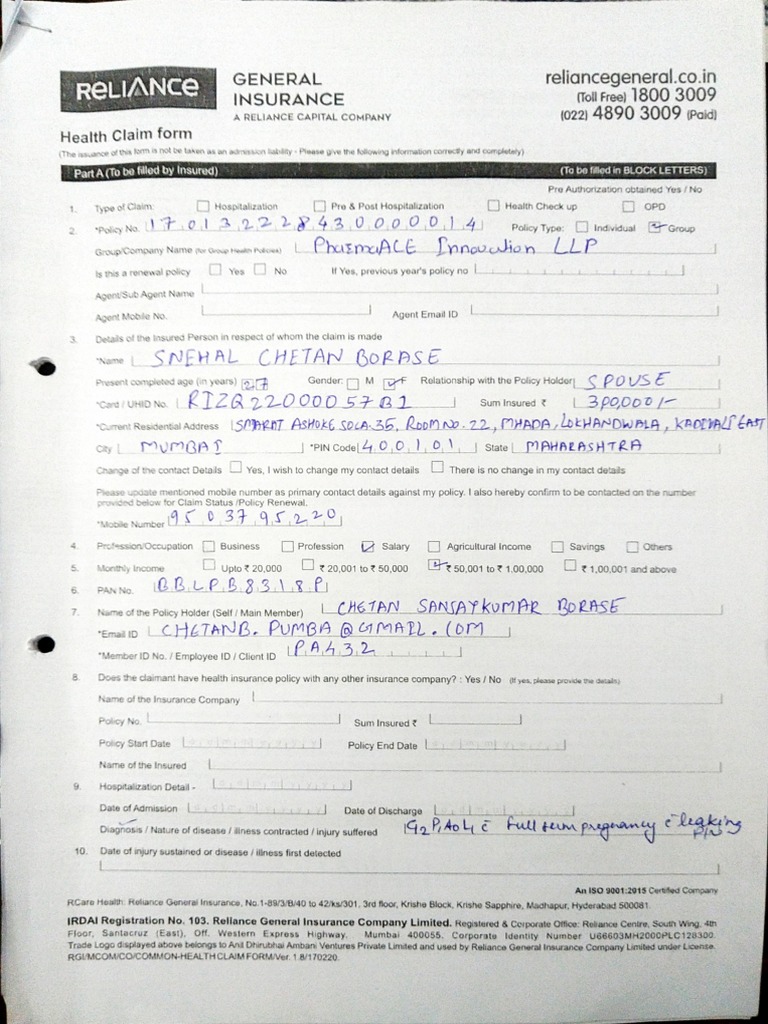 RELIANCE GENERAL INSURANCE
A RELIANCE CAPITAL COMPANY
reliancegeneral.co.in
(Toll Free) 1800 3009
(022) 4890 3009 (Paid)
Health Claim form
(The issuance of this form is not be taken as an admission liability - Please give the following information correctly and completely)
Part A (To be filled by Insured) (To be filled in BLOCK LETTERS)
Pre Authorization obtained Yes / No
1. Type of Claim: Hospitalization Pre & Post Hospitalization Health Check up OPD
2. *Policy No. 170132228430000014 Policy Type: Individual Group
Group/Company Name (for Group Health Policies) PharmaACE Innovation LLP
Is this a renewal policy Yes No If Yes, previous year's policy no
Agent/Sub Agent Name
Agent Mobile No. Agent Email ID
3. Details of the Insured Person in respect of whom the claim is made
*Name SNEHAL CHETAN BORASE
Present completed age (in years) 27 Gender: M F Relationship with the Policy Holder SPOUSE
*Card / UHID No. RIZQ22000057B1 Sum Insured ₹ 300,000/-
*Current Residential Address SMARAT ASHOKE SOCA.35, ROOM NO. 22, MHADA, LOKHANDWALA, KADIVALI EAST
City MUMBAI *PIN Code 400101 State MAHARASHTRA
Change of the contact Details Yes, I wish to change my contact details There is no change in my contact details
Please update mentioned mobile number as primary contact details against my policy. I also hereby confirm to be contacted on the number
provided below for Claim Status /Policy Renewal.
*Mobile Number 9503795220
4. Profession/Occupation Business Profession Salary Agricultural Income Savings Others
5. Monthly Income Upto ₹ 20,000 ₹ 20,001 to ₹ 50,000 ₹ 50,001 to ₹ 1,00,000 ₹ 1,00,001 and above
6. PAN No. BBLPB8318P
7. Name of the Policy Holder (Self / Main Member) CHETAN SANJAYKUMAR BORASE
*Email ID CHETANB.PUMBA@GMAIL.COM
*Member ID No. / Employee ID / Client ID PA432
8. Does the claimant have health insurance policy with any other insurance company? : Yes / No (If yes, please provide the details)
Name of the Insurance Company
Policy No. Sum Insured ₹
Policy Start Date Policy End Date
Name of the Insured
9. Hospitalization Detail -
Date of Admission Date of Discharge
Diagnosis / Nature of disease / illness contracted / injury suffered G2P1A0L1 c̄ full term pregnancy c̄ leaking P/V
10. Date of injury sustained or disease / illness first detected
An ISO 9001:2015 Certified Company
RCare Health: Reliance General Insurance, No.1-89/3/B/40 to 42/ks/301, 3rd floor, Krishe Block, Krishe Sapphire, Madhapur, Hyderabad 500081.
IRDAI Registration No. 103. Reliance General Insurance Company Limited. Registered & Corporate Office: Reliance Centre, South Wing, 4th
Floor, Santacruz (East), Off. Western Express Highway, Mumbai 400055. Corporate Identity Number U66603MH2000PLC128300.
Trade Logo displayed above belongs to Anil Dhirubhai Ambani Ventures Private Limited and used by Reliance General Insurance Company Limited under License.
RGI/MCOM/CO/COMMON-HEALTH CLAIM FORM/Ver. 1.8/170220.